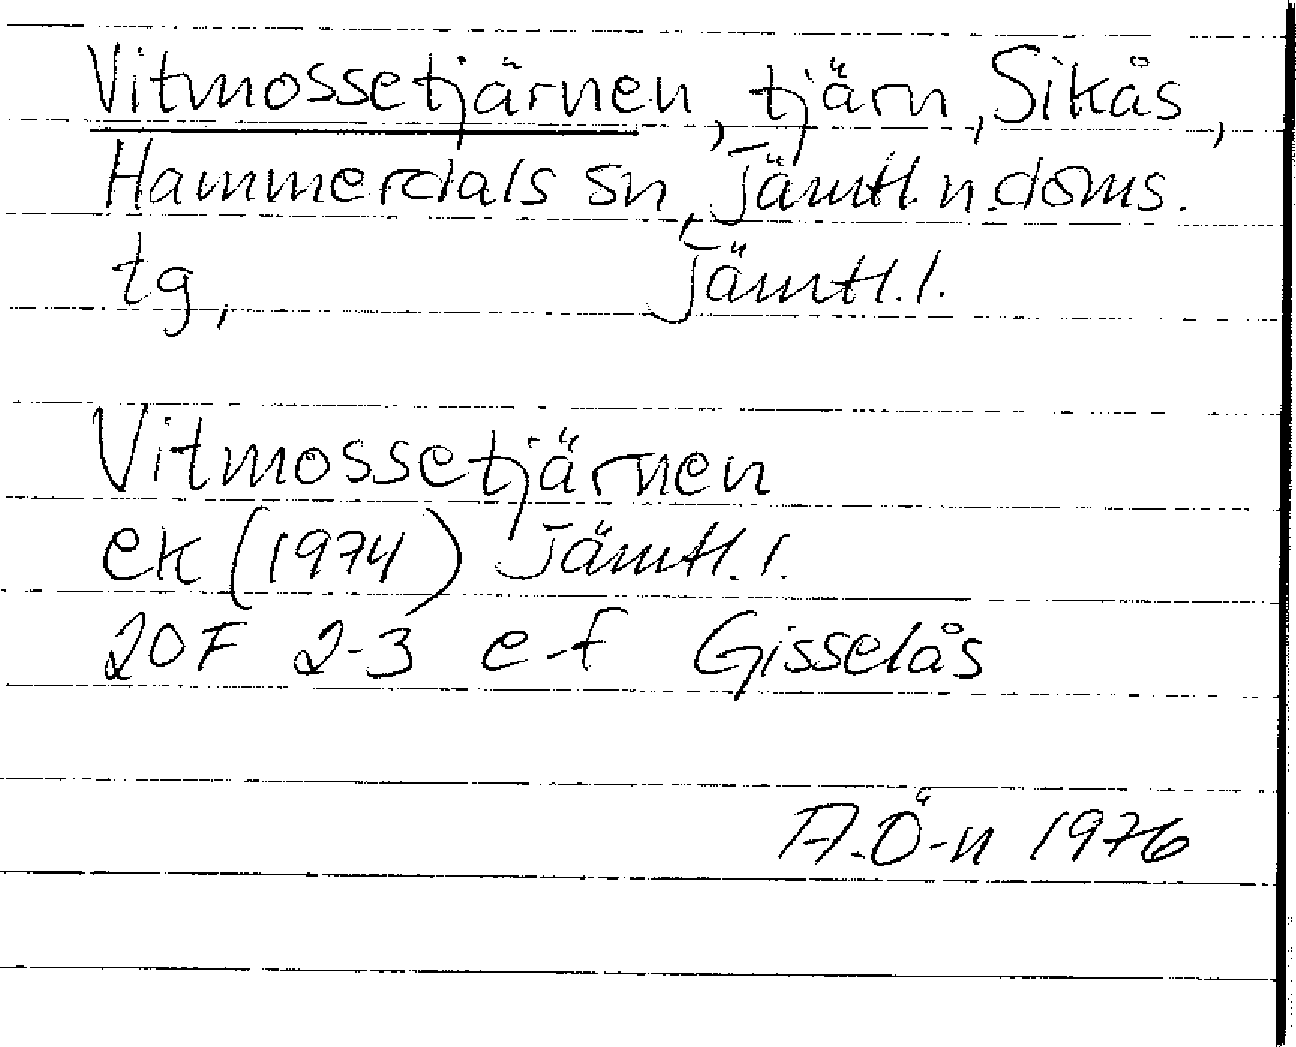 Vitmossetjärnen, tjärn, Sikås,
Hammerdals sn, Jämtl. n. doms.
tg, Jämtl. l.
Vitmossetjärnen
ek (1974) Jämtl. l.
20F 2-3 e-f Gisselås
A. Ö-n 1976